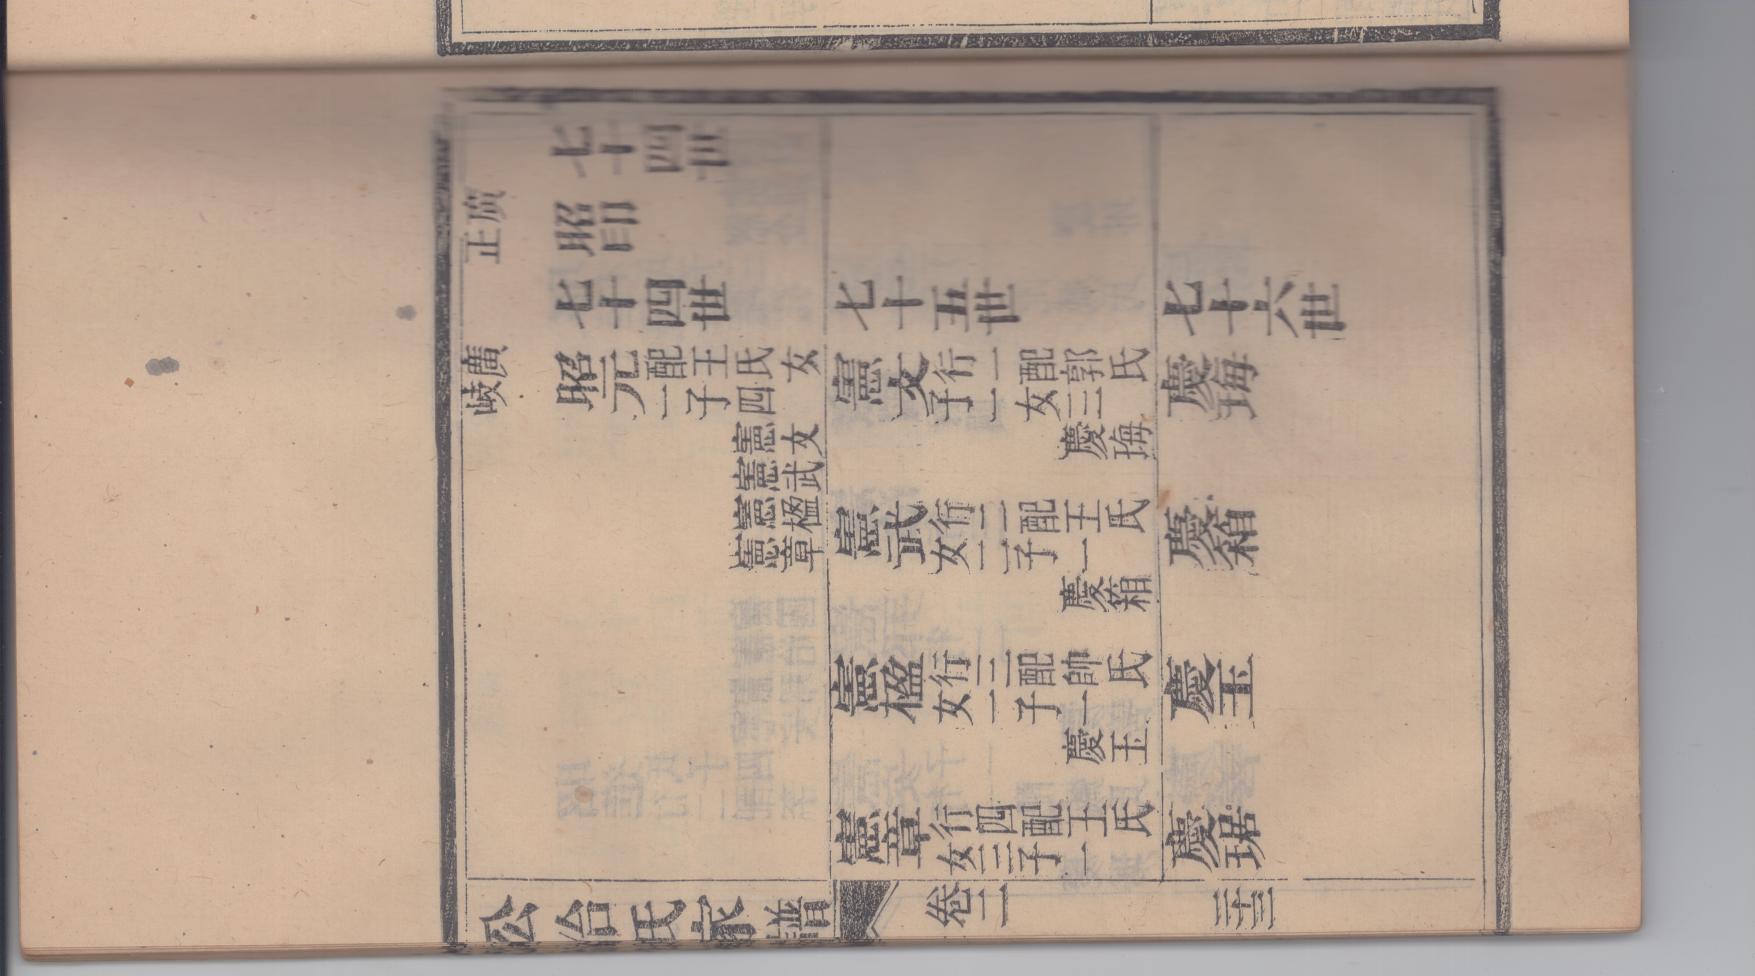 七十四世
廣正 昭印
七十四世 七十五世 七十六世
廣岐 昭元 配王氏女一子四 憲文 行一配郭氏子一女三 慶珻
憲文 慶珻
憲武
憲楹 憲武 行二配王氏女一子一 慶箱
憲章 慶箱
憲楹 行三配帥氏女一子一 慶玉
慶玉
憲章 行四配王氏女三子一 慶琚
公台氏家譜 卷二 三十三